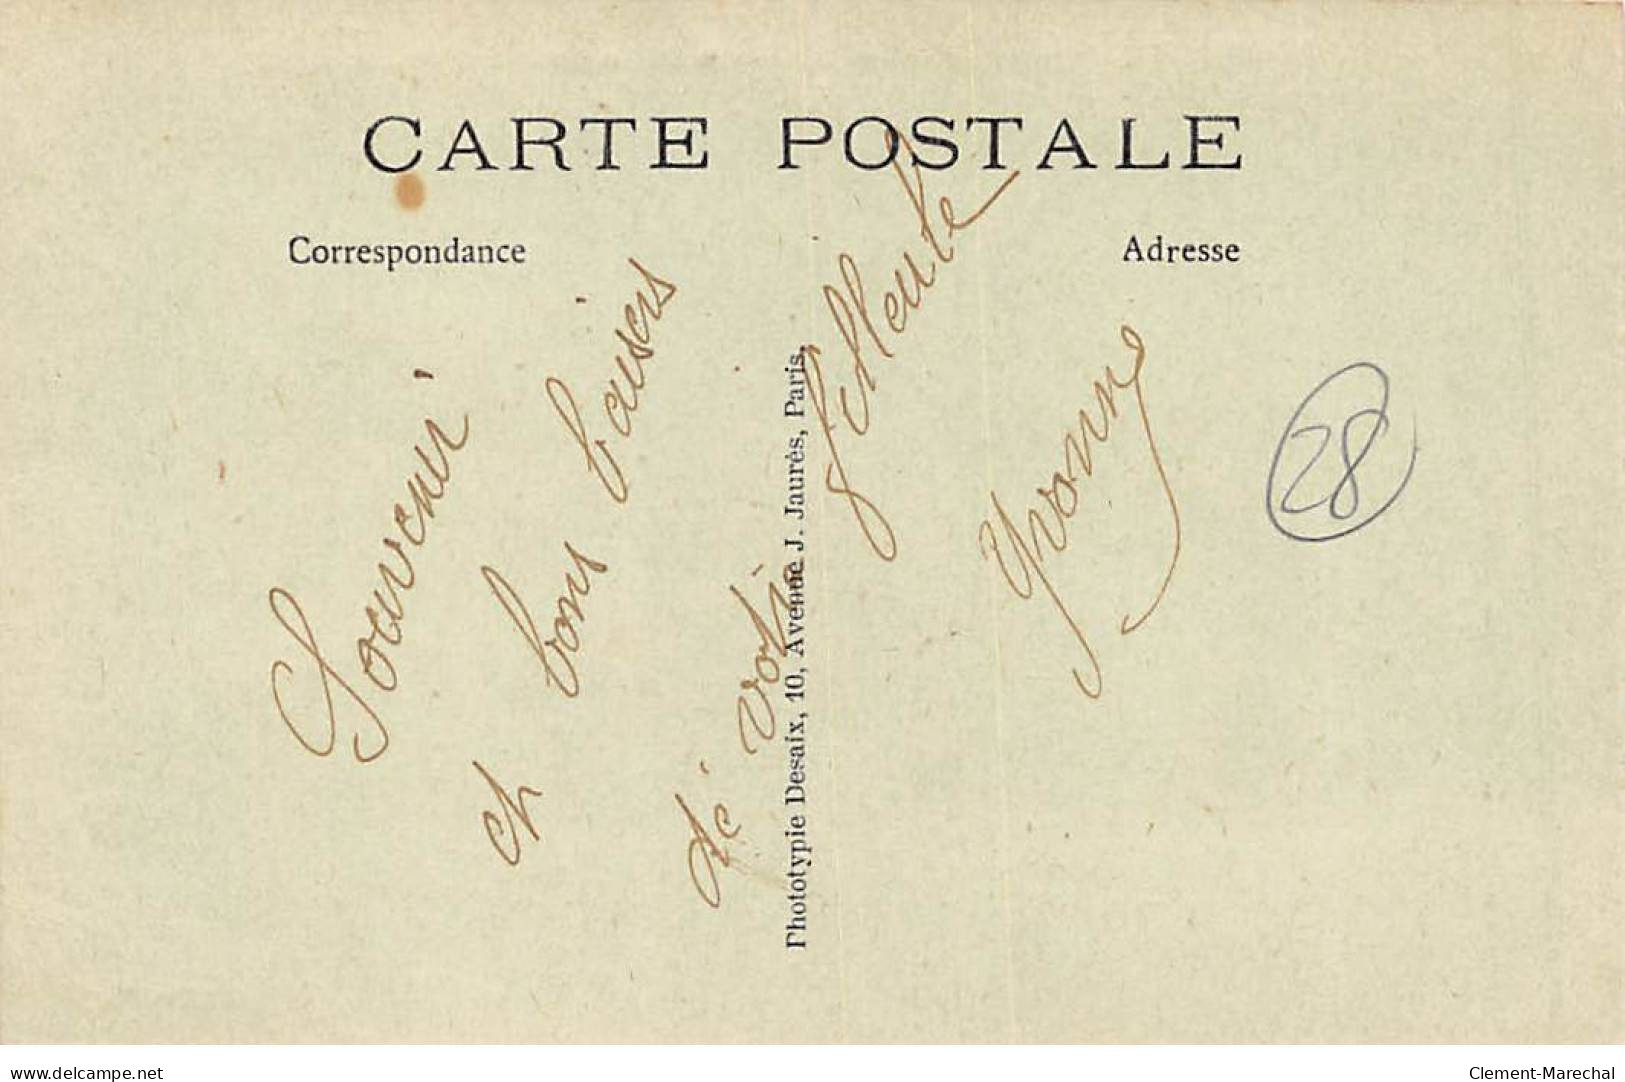 CARTE POSTALE
Correspondance
Adresse
Souvenir
et bons baisers
de votre filleule
Yvonne
28
Phototypie Desaix, 10, Avenue J. Jaurès, Paris.
www.delcampe.net
Clement-Marechal